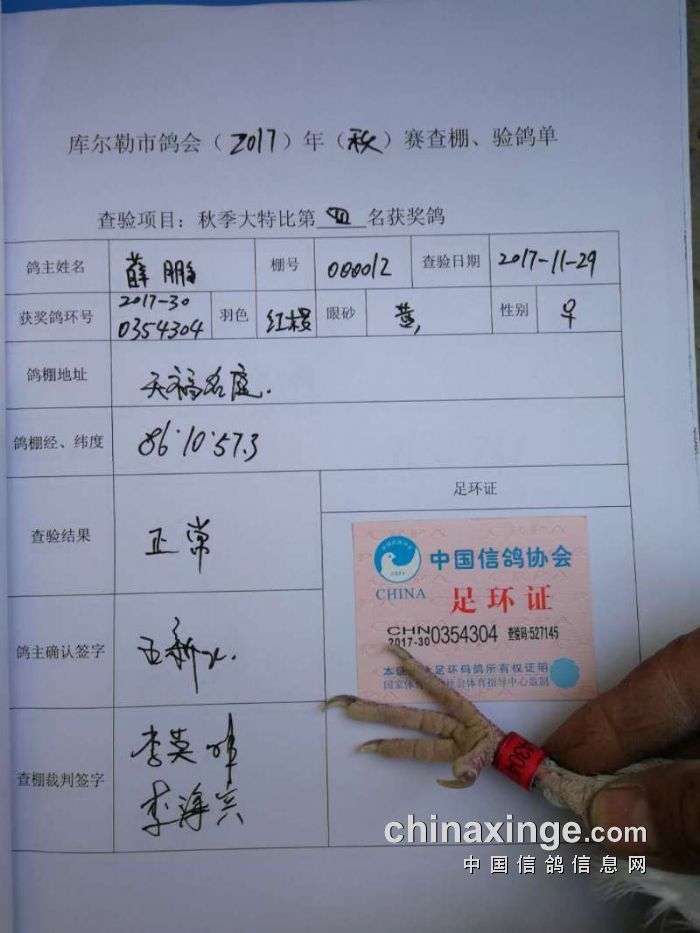 库尔勒市鸽会（2017）年（秋）赛查棚、验鸽单
查验项目：秋季大特比第 名获奖鸽
鸽主姓名 薛鹏 棚号 000012 查验日期 2017-11-29
获奖鸽环号 2017-30 0354304 羽色 红楼 眼砂 黄, 性别 ♀
鸽棚地址 天福名庭.
鸽棚经、纬度 86·10·57.3
足环证
查验结果 正常
中国信鸽协会
CHINA
足环证
CHN
2017-30 0354304 查验码:527145
本证 足环码鸽所有权证明
国家体 社会体育指导中心监制
鸽主确认签字
查棚裁判签字 李英
李海兴
4304
chinaxinge.com
中国信鸽信息网